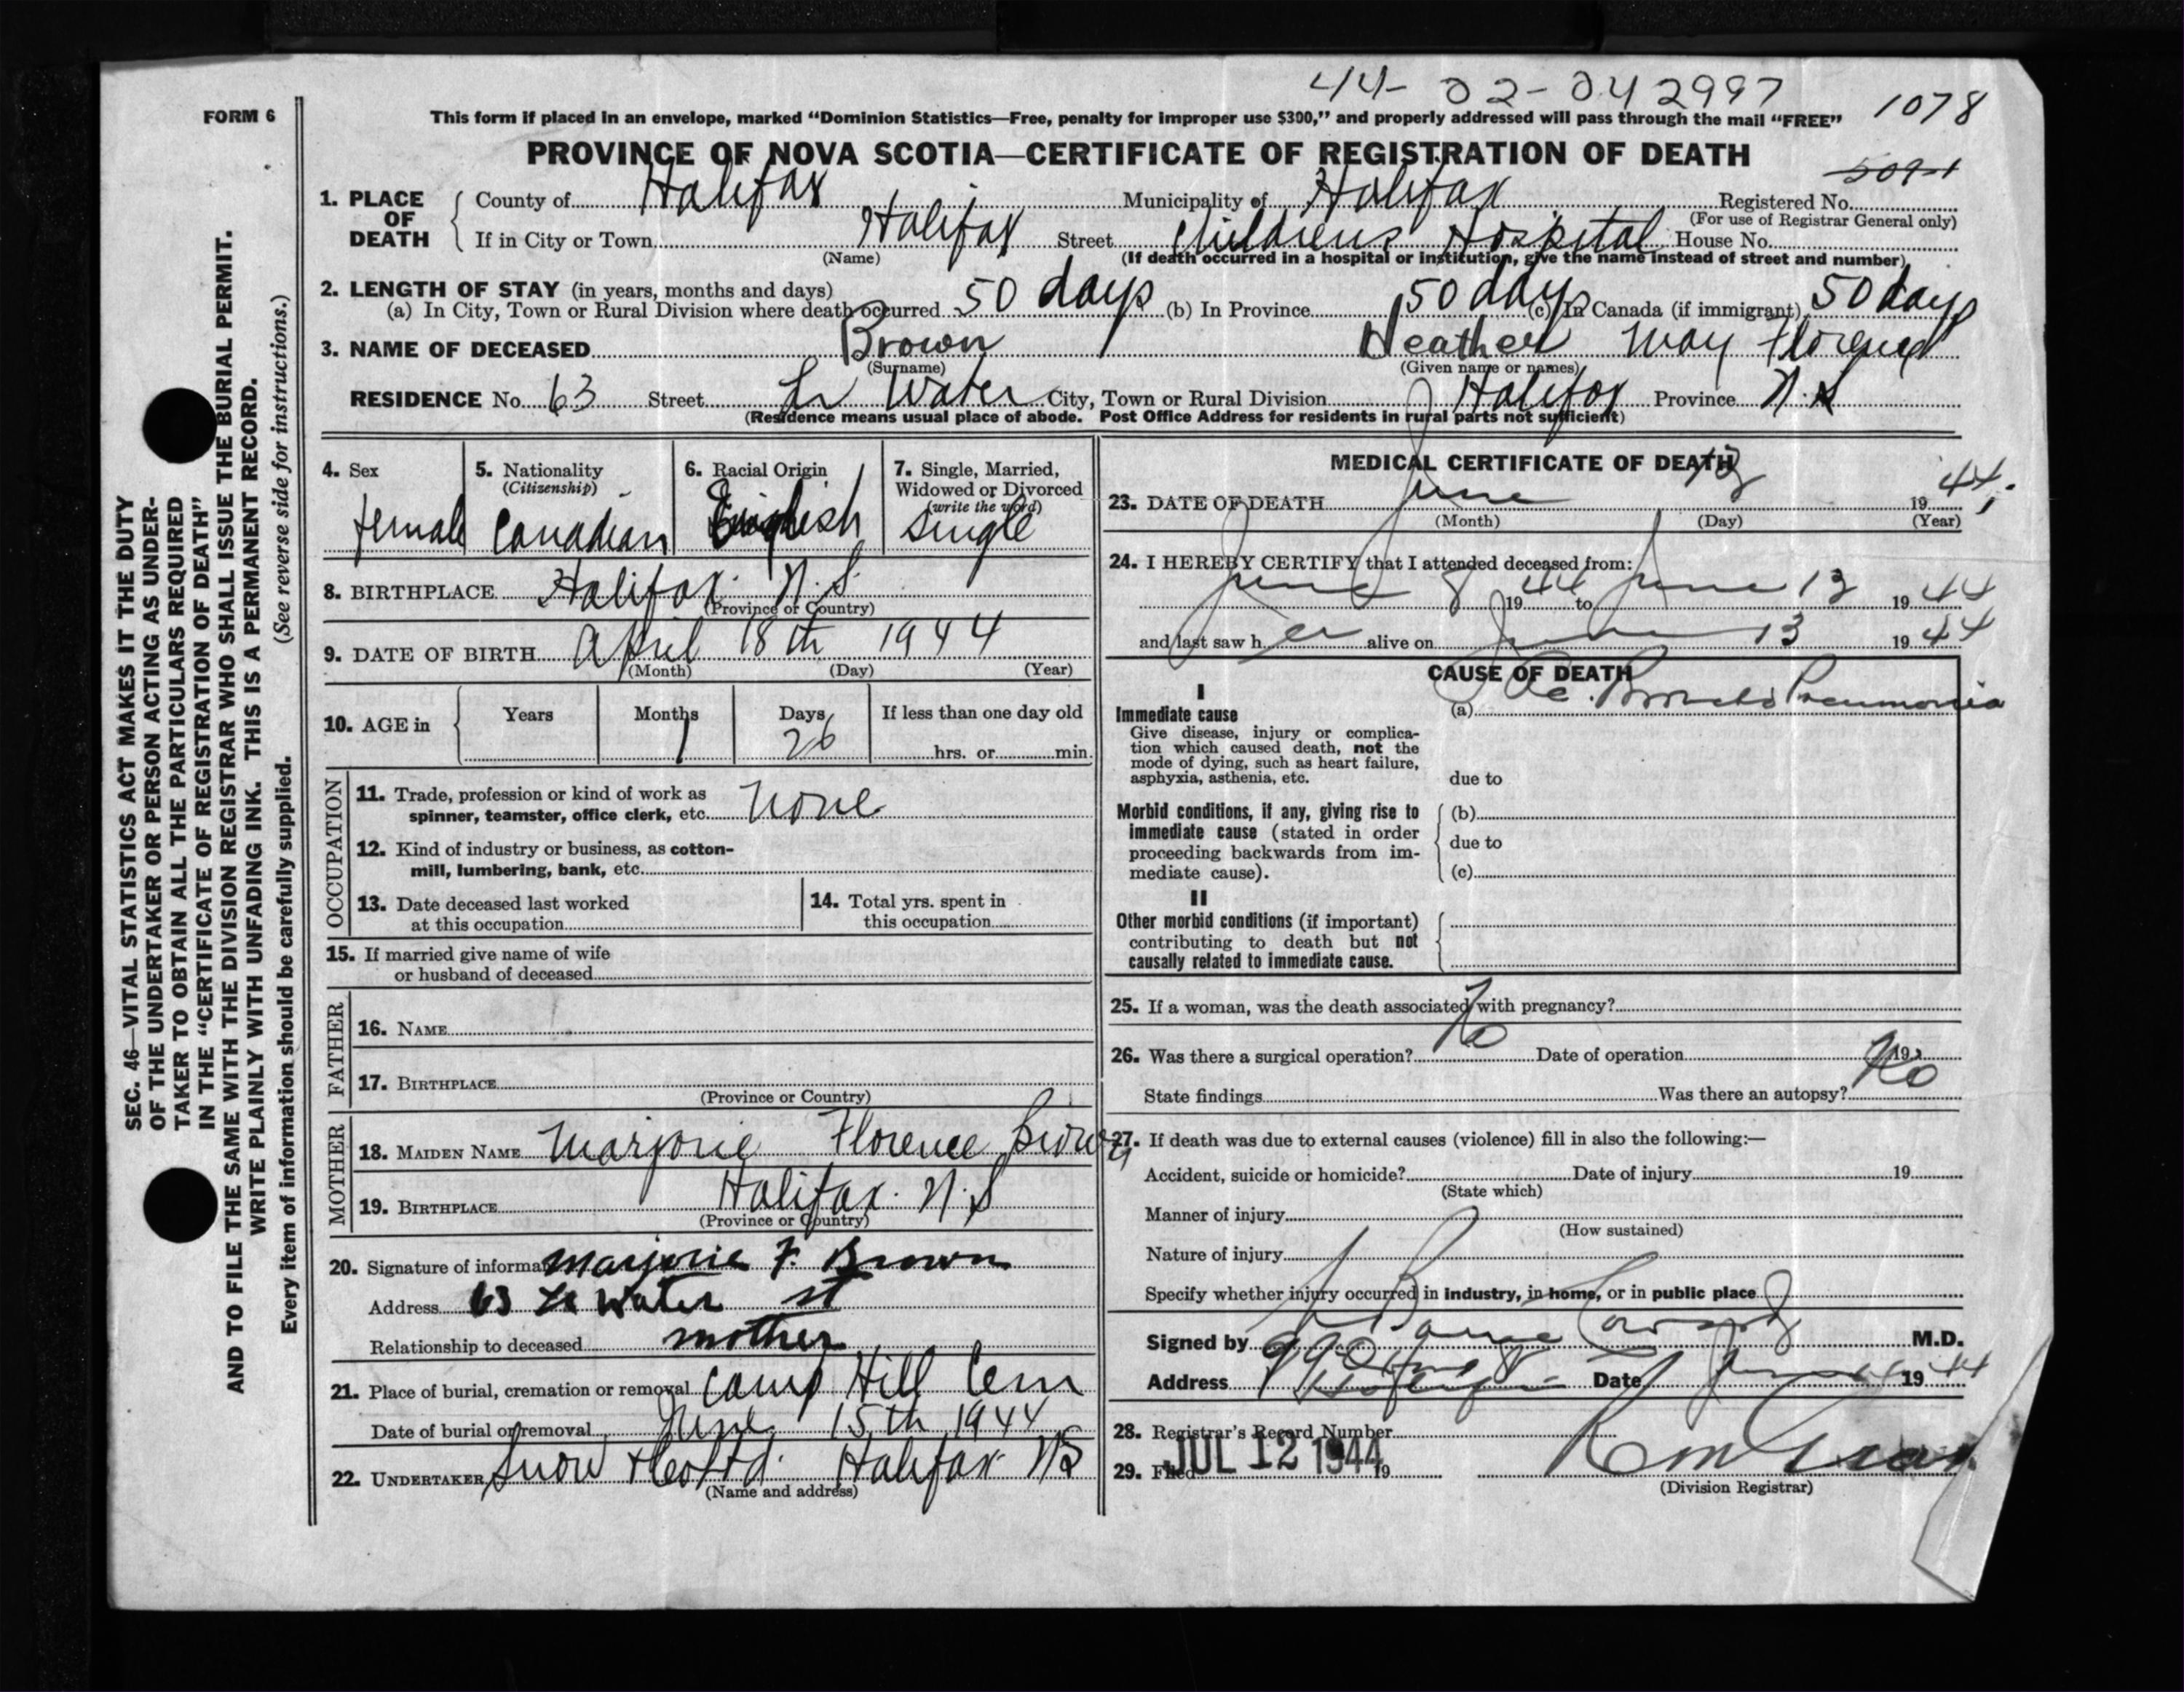 44- 02-042997
1078
FORM 6
This form if placed in an envelope, marked “Dominion Statistics—Free, penalty for improper use $300,” and properly addressed will pass through the mail “FREE”
PROVINCE OF NOVA SCOTIA—CERTIFICATE OF REGISTRATION OF DEATH
1. PLACE OF DEATH
County of Halifax Municipality of Halifax Registered No.
(For use of Registrar General only)
If in City or Town Halifax Street Childrens Hospital House No.
(Name) (If death occurred in a hospital or institution, give the name instead of street and number)
2. LENGTH OF STAY (in years, months and days)
(a) In City, Town or Rural Division where death occurred 50 days (b) In Province 50 days (c) In Canada (if immigrant) 50 days
3. NAME OF DECEASED Brown Heather May Florence
(Surname) (Given name or names)
RESIDENCE No. 63 Street Lr Water City, Town or Rural Division Halifax Province N.S
(Residence means usual place of abode. Post Office Address for residents in rural parts not sufficient)
4. Sex
female
5. Nationality
(Citizenship)
Canadian
6. Racial Origin
English
7. Single, Married,
Widowed or Divorced
(write the word)
single
8. BIRTHPLACE Halifax. N.S.
(Province or Country)
9. DATE OF BIRTH April 18th 1944
(Month) (Day) (Year)
10. AGE in
Years Months Days If less than one day old
1 26 hrs. or min.
OCCUPATION
11. Trade, profession or kind of work as
spinner, teamster, office clerk, etc. none
12. Kind of industry or business, as cotton-
mill, lumbering, bank, etc.
13. Date deceased last worked
at this occupation
14. Total yrs. spent in
this occupation
15. If married give name of wife
or husband of deceased
FATHER
16. NAME
17. BIRTHPLACE
(Province or Country)
MOTHER
18. MAIDEN NAME Marjorie Florence Brown
19. BIRTHPLACE Halifax. N.S
(Province or Country)
20. Signature of informant Marjorie F. Brown
Address 63 Lr Water st
Relationship to deceased mother
21. Place of burial, cremation or removal Camp Hill Cem
Date of burial or removal June 15th 1944
22. UNDERTAKER Snow & Co Ltd. Halifax NS
(Name and address)
MEDICAL CERTIFICATE OF DEATH
23. DATE OF DEATH June 13 1944
(Month) (Day) (Year)
24. I HEREBY CERTIFY that I attended deceased from:
June 8 1944 to June 13 1944
and last saw her alive on June 13 1944
CAUSE OF DEATH
I
Immediate cause
Give disease, injury or complica-
tion which caused death, not the
mode of dying, such as heart failure,
asphyxia, asthenia, etc.
(a) Ac. Broncho Pneumonia
due to
Morbid conditions, if any, giving rise to
immediate cause (stated in order
proceeding backwards from im-
mediate cause).
(b)
due to
(c)
II
Other morbid conditions (if important)
contributing to death but not
causally related to immediate cause.
25. If a woman, was the death associated with pregnancy?
26. Was there a surgical operation? No Date of operation 19
State findings Was there an autopsy? No
27. If death was due to external causes (violence) fill in also the following:—
Accident, suicide or homicide? Date of injury 19
(State which)
Manner of injury
(How sustained)
Nature of injury
Specify whether injury occurred in industry, in home, or in public place
Signed by M.D.
Address Date June 1944
28. Registrar's Record Number
29. Filed JUL 12 1944 19
(Division Registrar)
SEC. 46—VITAL STATISTICS ACT MAKES IT THE DUTY
OF THE UNDERTAKER OR PERSON ACTING AS UNDER-
TAKER TO OBTAIN ALL THE PARTICULARS REQUIRED
IN THE “CERTIFICATE OF REGISTRATION OF DEATH”
AND TO FILE THE SAME WITH THE DIVISION REGISTRAR WHO SHALL ISSUE THE BURIAL PERMIT.
WRITE PLAINLY WITH UNFADING INK. THIS IS A PERMANENT RECORD.
Every item of information should be carefully supplied. (See reverse side for instructions.)